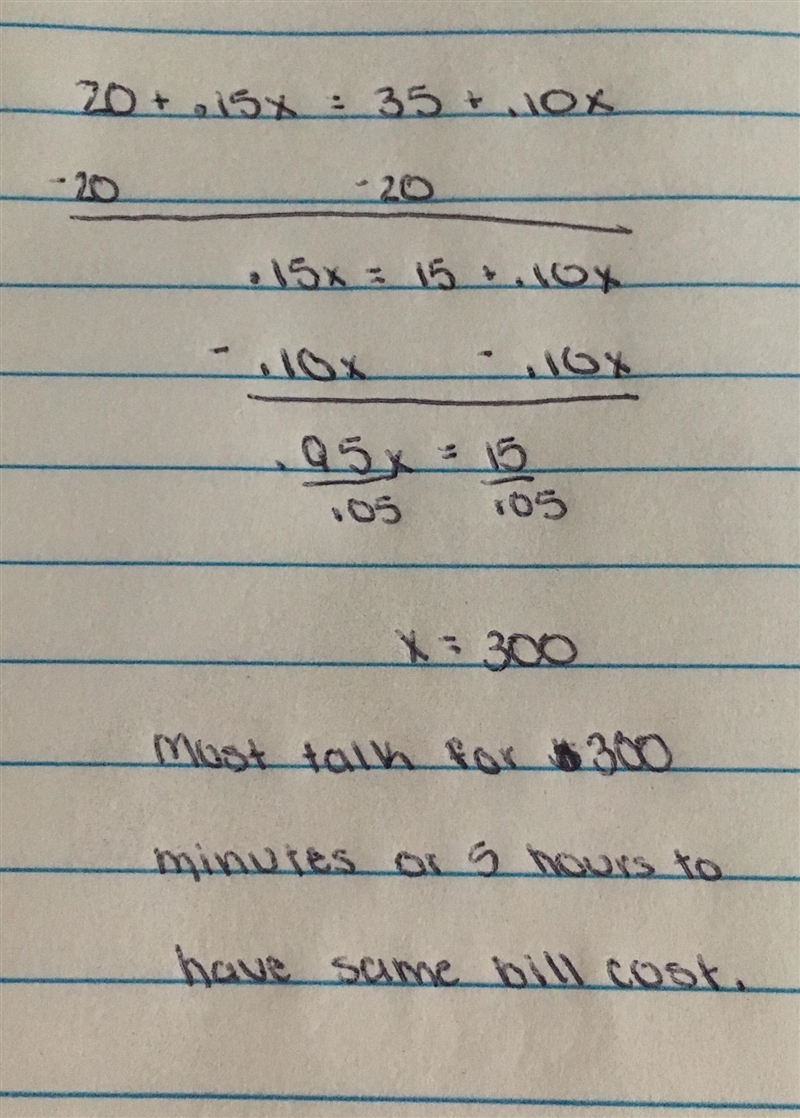 20 + .15x = 35 + .10x
-20 -20
.15x = 15 + .10x
- .10x - .10x
.05x = 15
.05 .05
x = 300
Must talk for 300
minutes or 5 hours to
have same bill cost.